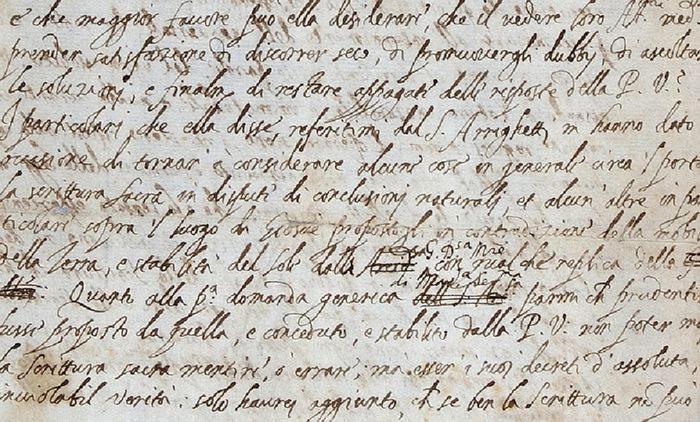 e che maggior favore può ella desiderare, che il vedere loro Alt.e med
prender satisfazione di discorrer seco, di promuovergli dubbij, di ascoltar
le soluzioni, e finalm. di restare appagati delle risposte della P. V.?
I particolari, che ella disse, referitimi dal S. Arrighetti, m hanno dato
casione di tornar à considerare alcune cose in generale circa 'l porta
la scrittura sacra in dispute di conclusioni naturali, et alcun' altre in par
ticolare sopra 'l luogo di Giosuè propostogli in contradizione della mobi
della Terra, e stabilità del Sole dalla con qualche replica della
Quanto alla p.a domanda generica parmi ch prudenti
fusse proposto da quella, e conceduto, e stabilito dalla P. V: non poter m
la Scrittura sacra mentire, ò errare, ma esser i suoi decreti d' assoluta,
inviolabil verità: solo haurei aggiunto, ch se ben la Scrittura nō può